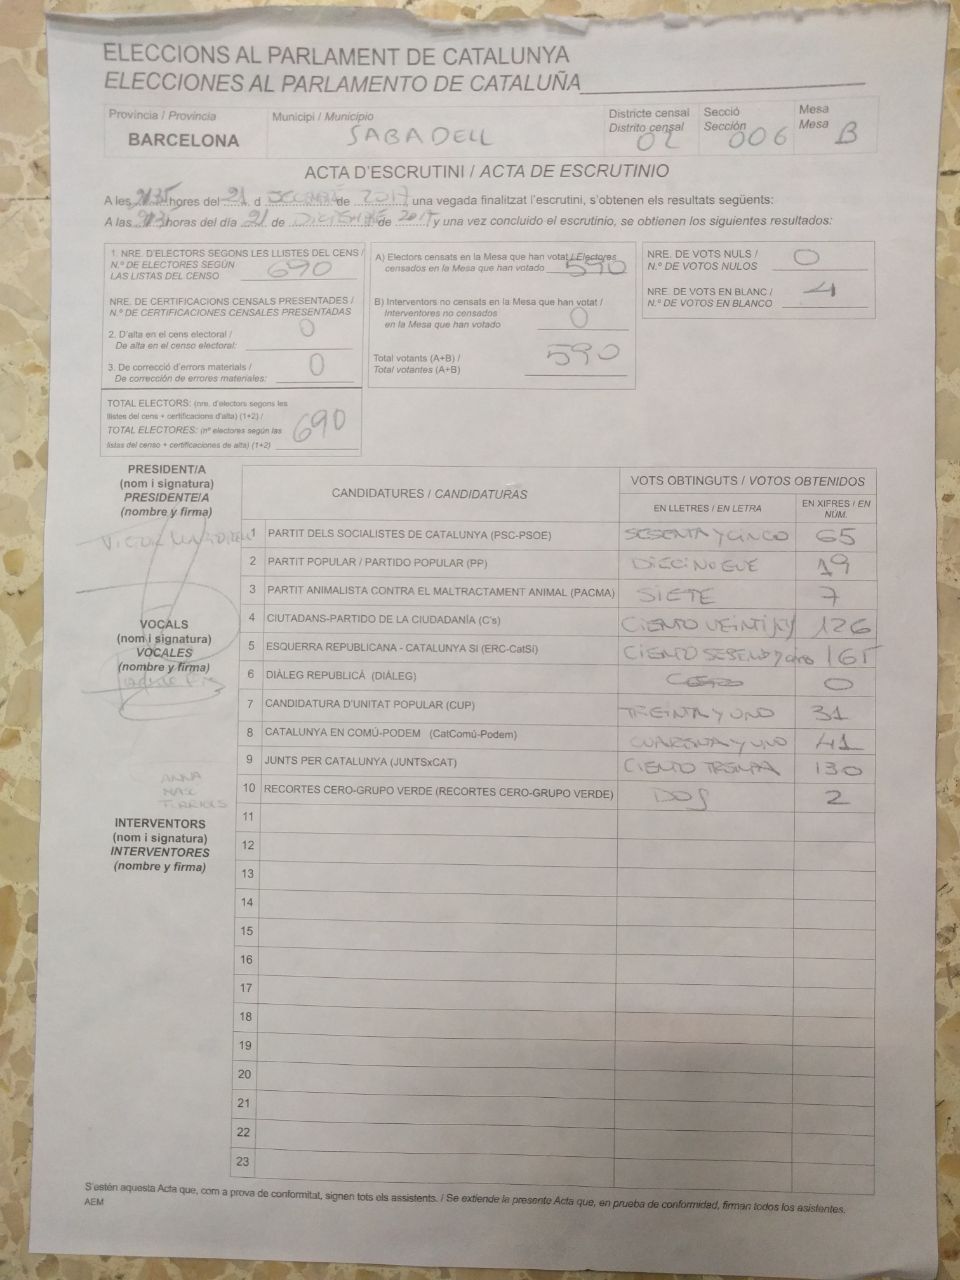 ELECCIONS AL PARLAMENT DE CATALUNYA
ELECCIONES AL PARLAMENTO DE CATALUÑA
Província / Provincia
BARCELONA
Municipi / Municipio
SABADELL
Districte censal
Distrito censal
02
Secció
Sección
006
Mesa
Mesa
B
ACTA D'ESCRUTINI / ACTA DE ESCRUTINIO
A les hores del 21 d de 2017 una vegada finalitzat l'escrutini, s'obtenen els resultats següents:
A las horas del día 21 de DICIEMBRE de 2017 y una vez concluido el escrutinio, se obtienen los siguientes resultados:
1. NRE. D'ELECTORS SEGONS LES LLISTES DEL CENS /
N.º DE ELECTORES SEGÚN
LAS LISTAS DEL CENSO
690
NRE. DE CERTIFICACIONS CENSALS PRESENTADES /
N.º DE CERTIFICACIONES CENSALES PRESENTADAS
2. D'alta en el cens electoral /
De alta en el censo electoral:
0
3. De correcció d'errors materials /
De corrección de errores materiales:
0
TOTAL ELECTORS: (nre. d'electors segons les
llistes del cens + certificacions d'alta) (1+2) /
TOTAL ELECTORES: (nº electores según las
listas del censo + certificaciones de alta) (1+2)
690
A) Electors censats en la Mesa que han votat / Electores
censados en la Mesa que han votado
590
B) Interventors no censats en la Mesa que han votat /
Interventores no censados
en la Mesa que han votado
0
Total votants (A+B) /
Total votantes (A+B)
590
NRE. DE VOTS NULS /
N.º DE VOTOS NULOS
0
NRE. DE VOTS EN BLANC /
N.º DE VOTOS EN BLANCO
4
PRESIDENT/A
(nom i signatura)
PRESIDENTE/A
(nombre y firma)
VICTOR
VOCALS
(nom i signatura)
VOCALES
(nombre y firma)
ANNA
INTERVENTORS
(nom i signatura)
INTERVENTORES
(nombre y firma)
CANDIDATURES / CANDIDATURAS
VOTS OBTINGUTS / VOTOS OBTENIDOS
EN LLETRES / EN LETRA
EN XIFRES / EN
NÚM.
1 PARTIT DELS SOCIALISTES DE CATALUNYA (PSC-PSOE) SESENTA Y CINCO 65
2 PARTIT POPULAR / PARTIDO POPULAR (PP) DIECINUEVE 19
3 PARTIT ANIMALISTA CONTRA EL MALTRACTAMENT ANIMAL (PACMA) SIETE 7
4 CIUTADANS-PARTIDO DE LA CIUDADANÍA (C's) CIENTO 126
5 ESQUERRA REPUBLICANA - CATALUNYA SI (ERC-CatSí) CIENTO 165
6 DIÀLEG REPUBLICÀ (DIÀLEG) 0
7 CANDIDATURA D'UNITAT POPULAR (CUP) TREINTA Y UNO 31
8 CATALUNYA EN COMÚ-PODEM (CatComú-Podem) CUARENTA Y UNO 41
9 JUNTS PER CATALUNYA (JUNTSxCAT) CIENTO TREINTA 130
10 RECORTES CERO-GRUPO VERDE (RECORTES CERO-GRUPO VERDE) DOS 2
11
12
13
14
15
16
17
18
19
20
21
22
23
S'estén aquesta Acta que, com a prova de conformitat, signen tots els assistents. / Se extiende la presente Acta que, en prueba de conformidad, firman todos los asistentes.
AEM